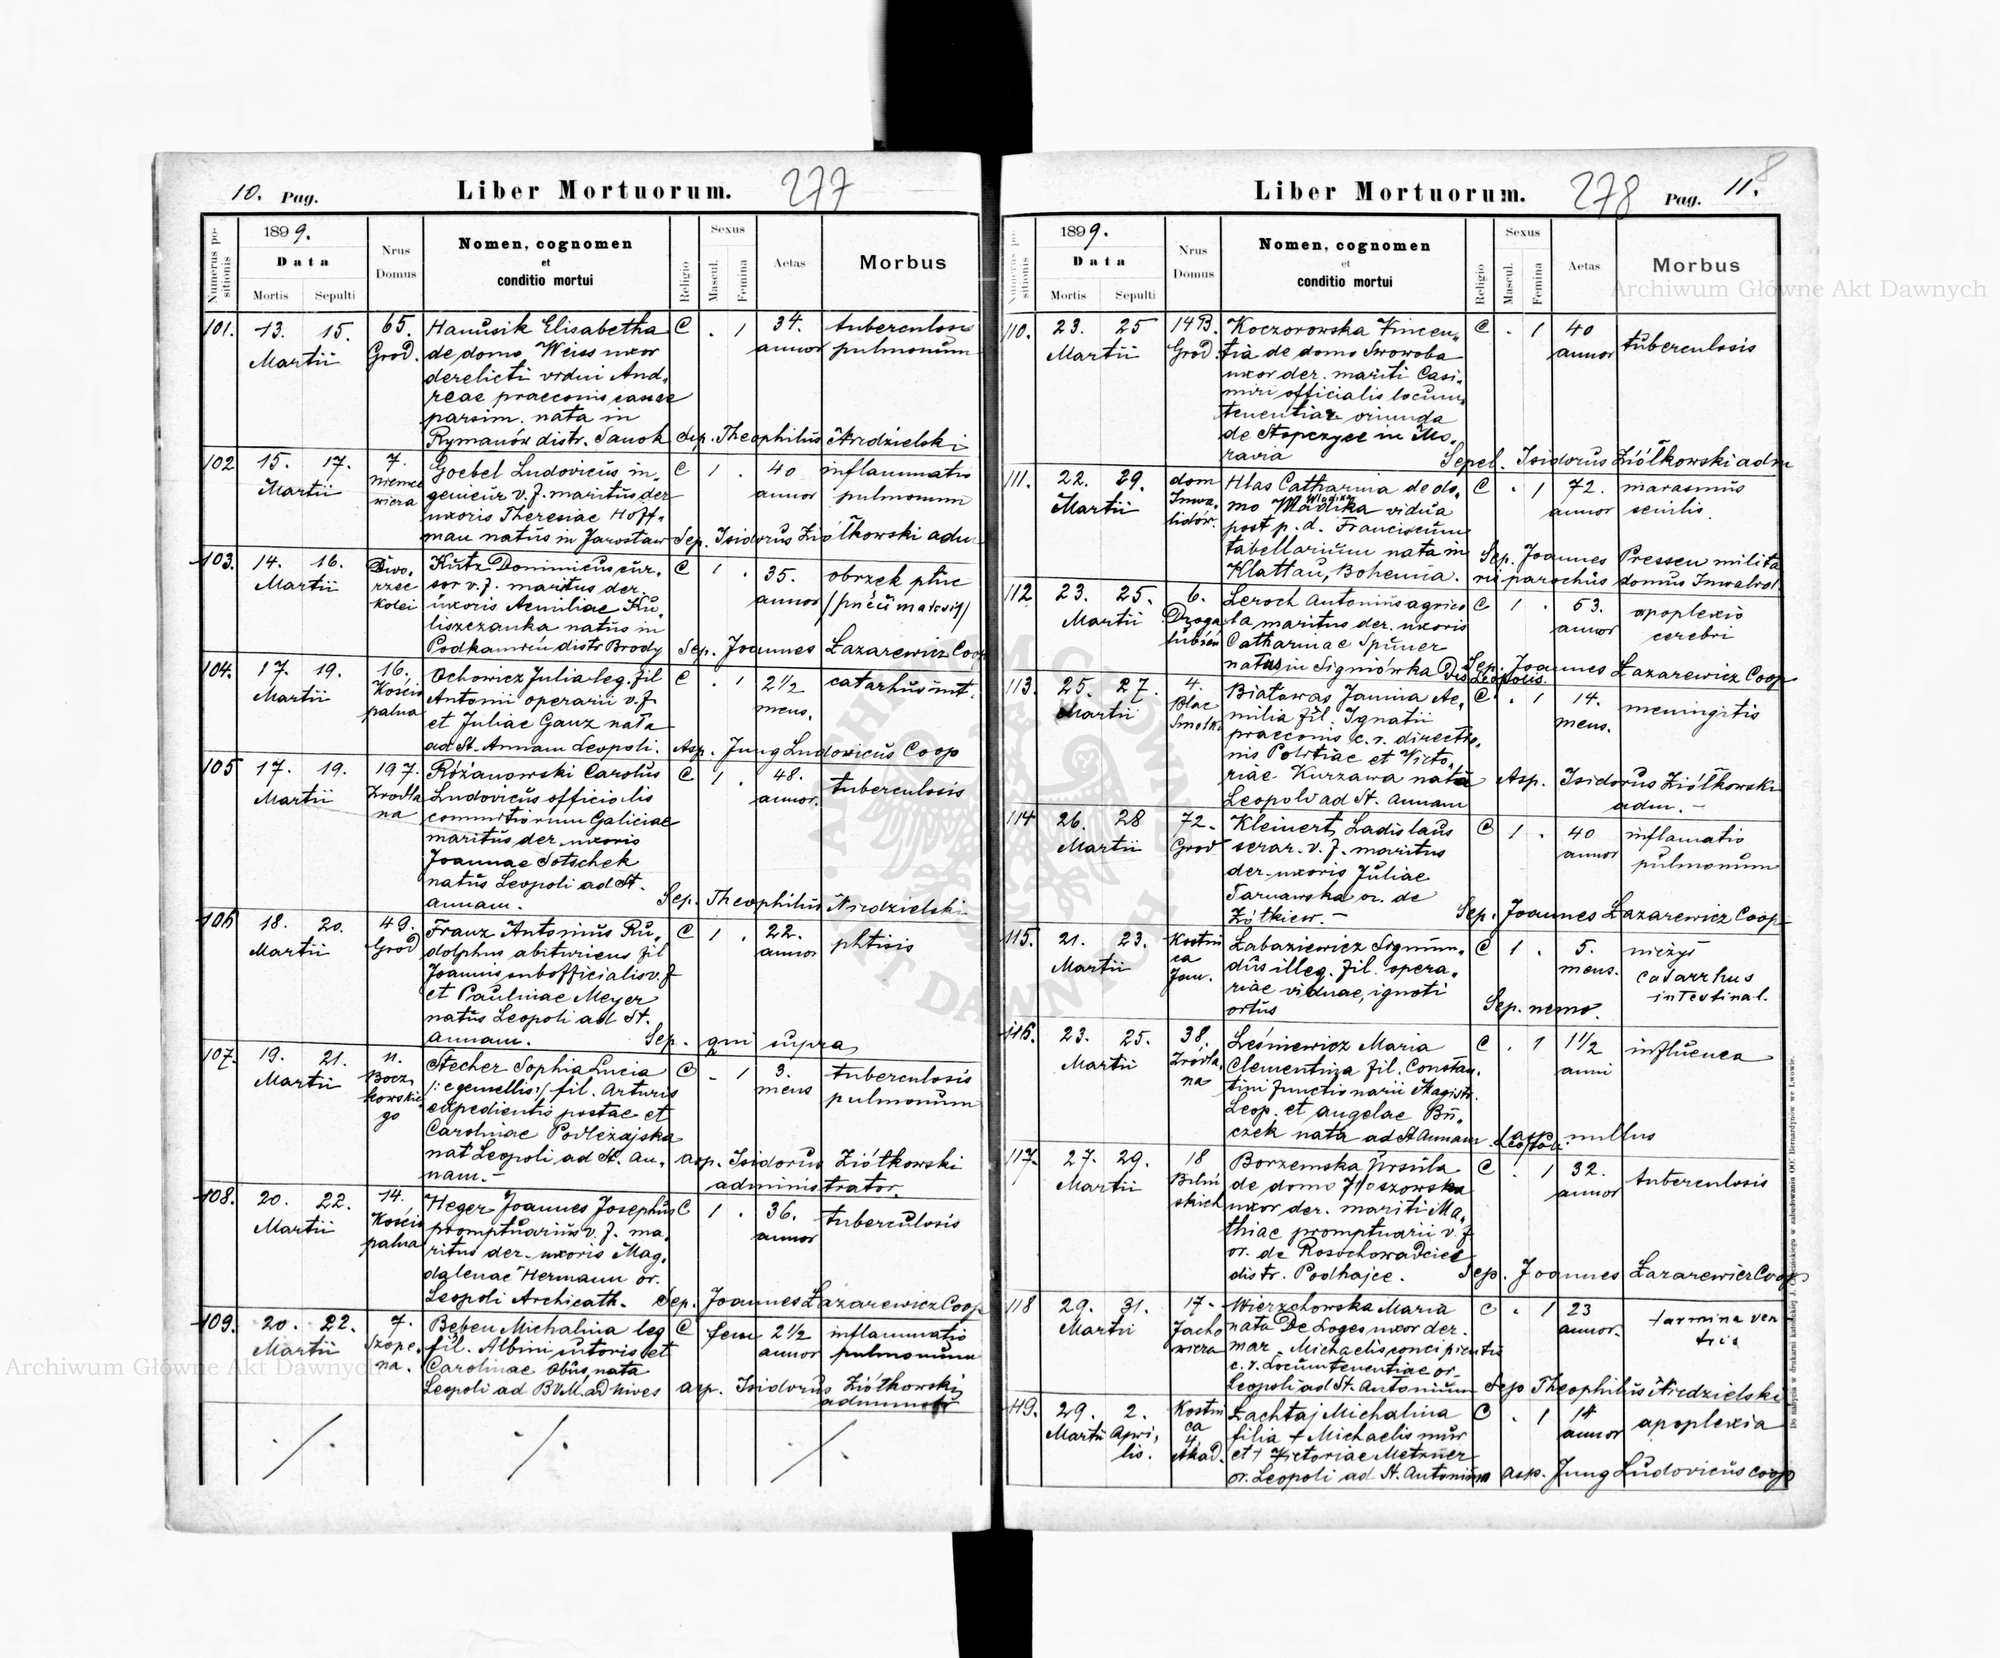 10. Pag. Liber Mortuorum. 277
Numerus positionis
1899.
Data
Mortis Sepulti
Nrus Domus
Nomen, cognomen
et
conditio mortui
Religio
Sexus
Mascul. Femina
Aetas
Morbus
101. 13. 15. 65. Hanusik Elisabetha C . 1 34. tuberculosis
Martii Grod. de domo Weiss uxor annor pulmonum
derelicti vidui And,
reae praeconis causae
parsim. nata in
Rymanów distr. Sanok Sep. Theophilus Niedzielski
102 15. 17. 7. Goebel Ludovicus in, C 1 . 40 inflammatio
Martii genieur v. f. maritus der annor pulmonum
uxoris Theresiae Hoff,
man natus in Jarosław Sep. Isidorus Ziółkowski adm
103. 14. 16. Dwo, Kutz Dominicus cur, C 1 . 35. obrzek płuc
Martii rzec sor v. f. maritus der. annor
kolei uxoris Aemiliae Ku,
liszczanka natus in
Podkamień distr Brody Sep. Joannes Łazarewicz Coop
104. 17. 19. 16. Ochowicz Julia leg. fil C . 1 2 1/2 catarhus int.
Martii Kościo Antonii operarii v. f mens.
palna et Juliae Ganz nata
ad St. Annam Leopoli. Asp. Jung Ludovicus Coop
105 17. 19. 197. Różanowski Carolus C 1 . 48. tuberculosis
Martii Zrodla Ludovicus officialis annor.
na Galiciae
maritus der. uxoris
Joannae Sotschek
natus Leopoli ad St.
Annam. Sep. Theophilus Niedzielski
106 18. 20. 49. Franz Antonius Ru, C 1 . 22. phtisis
Martii Grod dolphus abituriens fil annor
Joannis subofficialis v. f
et Paulinae Meyer
natus Leopoli ad St.
Annam. Sep. qui supra
107. 19. 21. 11. Stecher Sophia Lucia C - 1 3. tuberculosis
Martii Bocz, /: e gemellis :/ fil. Arturis mens pulmonum
kowskie expedientis postae et
go Carolinae Podleżajska
nat Leopoli ad St. An, asp. Isidorus Ziółkowski
nam. - administrator.
108. 20. 22. 14. Heger Joannes Josephus C 1 . 36. tuberculosis
Martii Kościo promptuarius v. f. ma, annor
palna ritus der. uxoris Mag,
dalenae Hermann or.
Leopoli Archicath. Sep. Joannes Łazarewicz Coop
109. 20. 22. 7. Beben Michalina leg C fem 2 1/2 inflammatio
Martii Szope, fil. Albini sutoris et annor pulmonum
na. Carolinae Obus, nata
Leopoli ad BVM. ad nives asp. Isidorus Ziółkowski
./. ./. ./.
Liber Mortuorum. 278 Pag. 11.
8
Numerus positionis
1899.
Data
Mortis Sepulti
Nrus Domus
Nomen, cognomen
et
conditio mortui
Religio
Sexus
Mascul. Femina
Aetas
Morbus
110. 23. 25 14B. Koczorowska Vincen, C . 1 40 tuberculosis
Martii Grod. tia de domo Swowoba annor
uxor der. mariti Casi,
miri officialis locum,
tenentiae oriunda
de in Mo,
ravia Sepel. Isidorus Ziółkowski adm
111. 22. 29. dom Hlas Catharina de do, C . 1 72. marasmus
Martii Inwa, mo Wladika vidua annor senilis.
lidów. post p. d. Franciscum
tabellarium nata in Sep. Joannes Pressen milita
Klattau, Bohemia. ris parochus domus Inwalid.
112 23. 25. 6. Leroch Antonius agrico C 1 . 53. apoplexio
Martii la maritus der. uxoris annor cerebri
Catharinae Spuner
natus in Signiówka Sep. Joannes Łazarewicz Coop
113. 25. 27. 4. Białowas Janina Ae, C . 1 14. meningitis
Martii Plac milia fil. Ignatii mens.
Smolki praeconis c. r. directio,
nis Politiae et Victo,
riae Kurzawa nata Asp. Isidorus Ziółkowski
Leopoli ad St. Annam adm. -
114 26. 28 72. Kleinert Ladislaus C 1 . 40 inflamatio
Martii Grod serar. v. f. maritus annor pulmonum
der. uxoris Juliae
Tarnawska or. de
Żółkiew. - Sep. Joannes Łazarewicz Coop
115. 21. 23. Kostni Łabaziewicz Sigmun, C 1 . 5. nieżyt
Martii ca dus illeg. fil. opera, mens. catarrhus
Jan. riae viduae, ignoti intestinal.
ortus Sep. nemo.
116. 23. 25. 38. Leśniewicz Maria C . 1 1 1/2 influenca
Martii Zródla, Clementina fil. Constan, anni
na tini functionarii Magistr.
Leop. et Angelae Bu,
czek nata ad St Annam Leopoli. asp nullus
117. 27. 29. 18 Borzemska Ursula C . 1 32. tuberculosis
Martii Bilin de domo annor
skich uxor der. mariti Ma,
thiae promptuarii v. f
or. de Rosochowaciec
distr. Podhajce. Sep. Joannes Łazarewicz Coop
118 29. 31. 17. Wierzchowska Maria C . 1 23 tormina ven
Martii Jacho nata De Loges uxor der. annor. tris
wicza mar. Michaelis concipientis
c. r. Locumtenentiae or.
Leopoli ad St. Antonium Sep Theophilus Niedzielski
119. 29. 2. Kostni Łachtaj Michalina C . 1 14 apoplexia
Martii Apri, ca filia + Michaelis mur annor
lis. 4. et + Victoriae Metzner
Akad. or. Leopoli ad St. Antonium asp. Jung Ludovicus coop
Archiwum Główne Akt Dawnych
Archiwum Główne Akt Dawnych